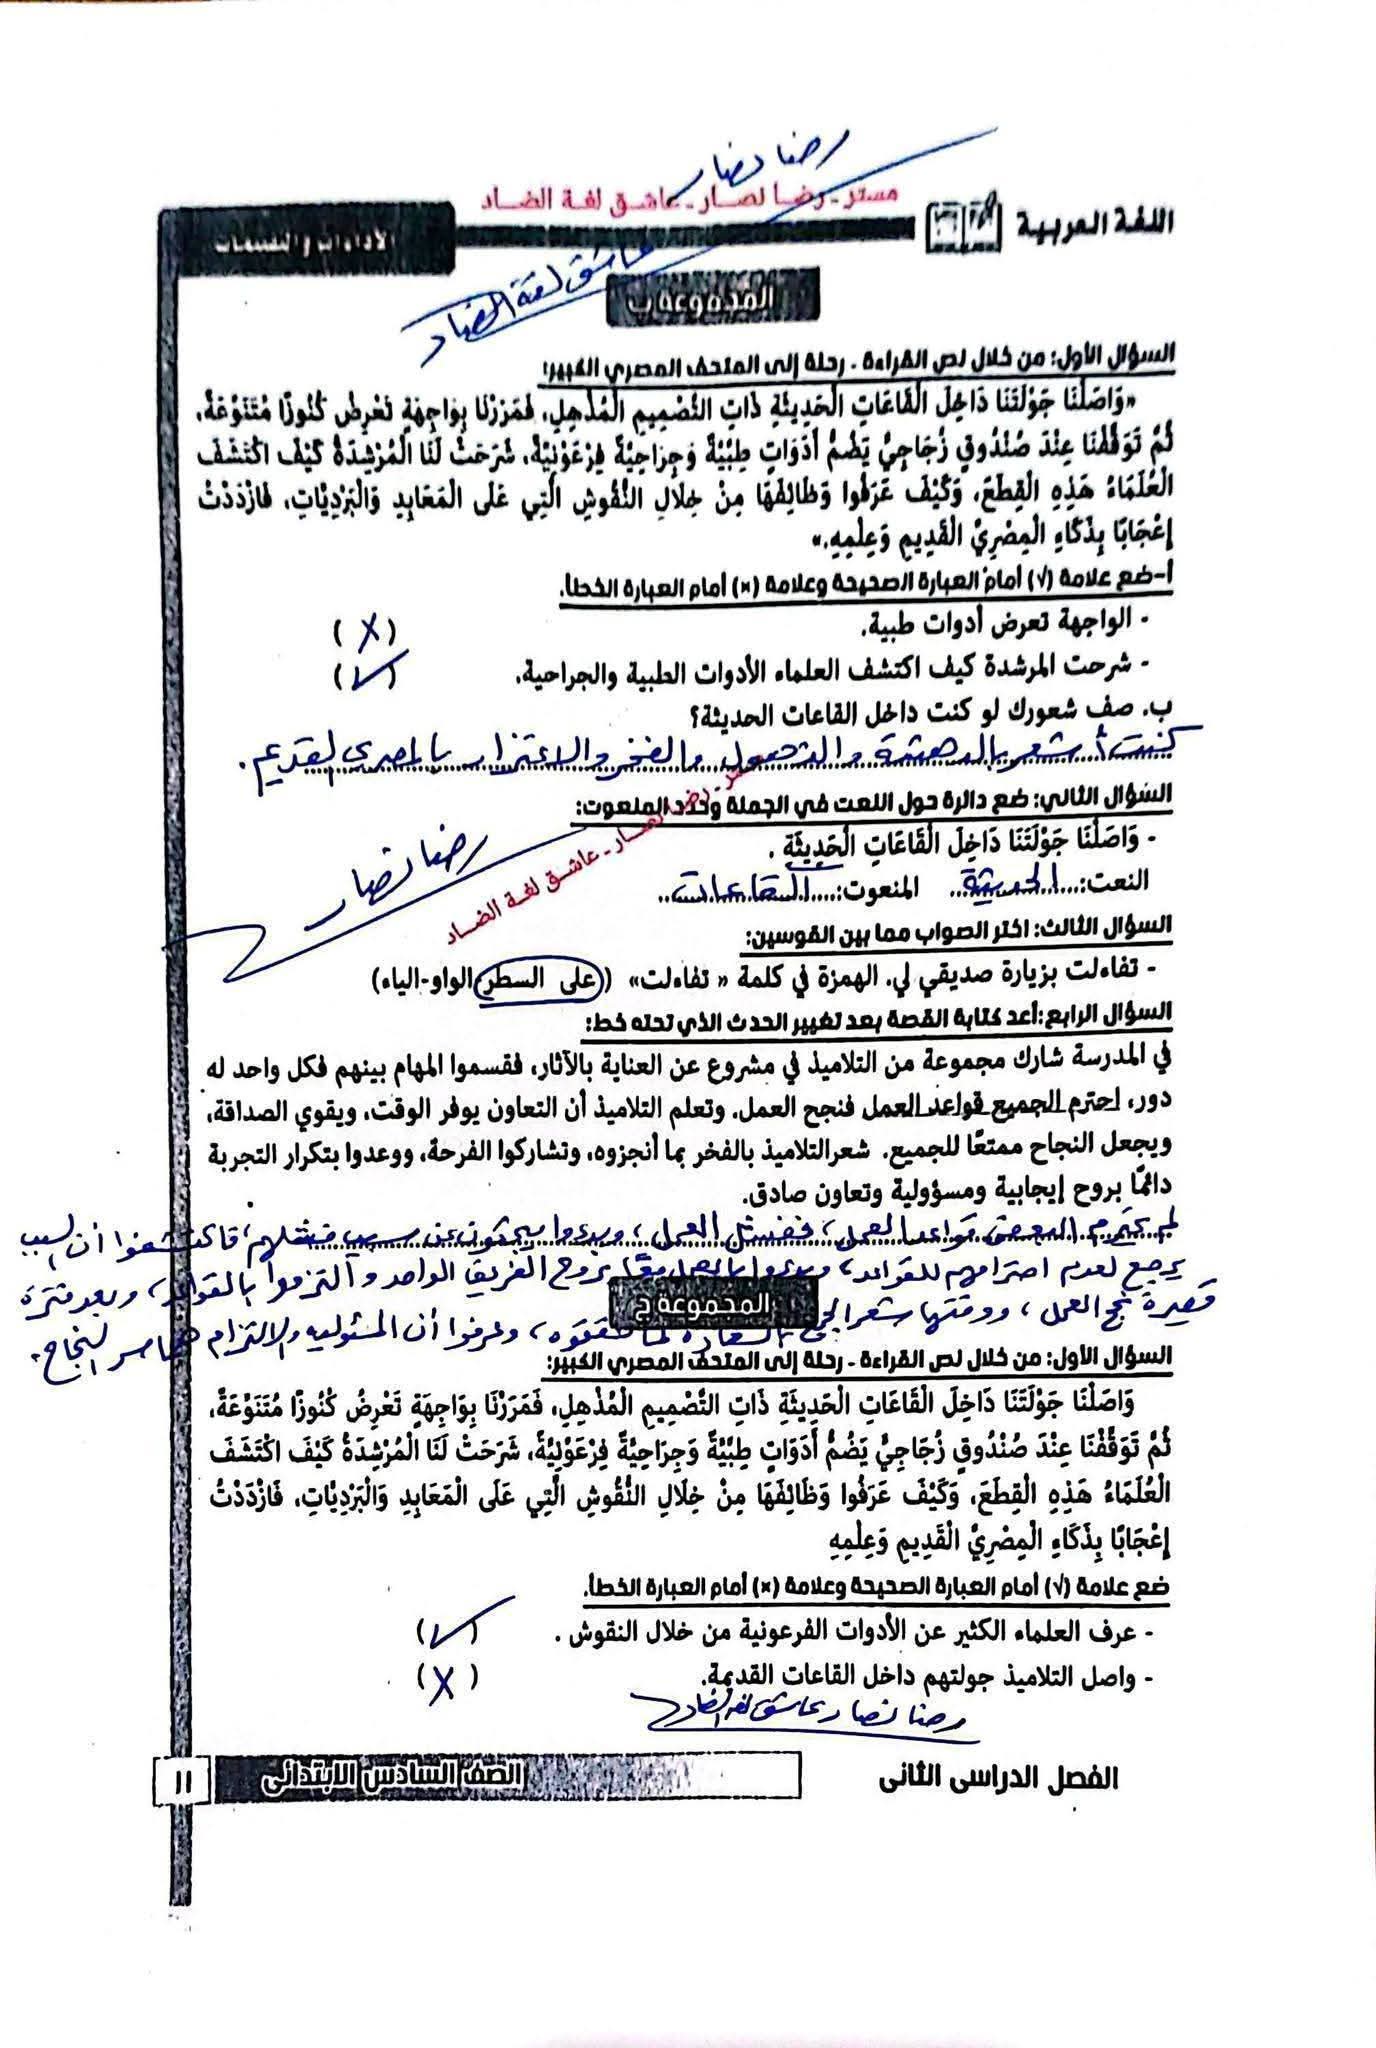 رضا نصار
مستر - رضا نصار - عاشق لغة الضاد
اللغة العربية
الأداءات والتقييمات
عاشق لغة الضاد
المجموعة ب
السؤال الأول: من خلال نص القراءة - رحلة إلى المتحف المصري الكبير:
«وَاصَلْنَا جَوْلَتَنَا دَاخِلَ الْقَاعَاتِ الْحَدِيثَةِ ذَاتِ التَّصْمِيمِ الْمُذْهِلِ، فَمَرَرْنَا بِوَاجِهَةٍ تَعْرِضُ كُنُوزًا مُتَنَوِّعَةً،
ثُمَّ تَوَقَّفْنَا عِنْدَ صُنْدُوقٍ زُجَاجِيٍّ يَضُمُّ أَدَوَاتٍ طِبِّيَّةً وَجِرَاحِيَّةً فِرْعَوْنِيَّةً، شَرَحَتْ لَنَا الْمُرْشِدَةُ كَيْفَ اكْتَشَفَ
الْعُلَمَاءُ هَذِهِ الْقِطَعَ، وَكَيْفَ عَرَفُوا وَظَائِفَهَا مِنْ خِلَالِ النُّقُوشِ الَّتِي عَلَى الْمَعَابِدِ وَالْبَرْدِيَّاتِ، فَازْدَدْتُ
إِعْجَابًا بِذَكَاءِ الْمِصْرِيِّ الْقَدِيمِ وَعِلْمِهِ.»
أ-ضع علامة (√) أمام العبارة الصحيحة وعلامة (×) أمام العبارة الخطأ.
- الواجهة تعرض أدوات طبية. (X)
- شرحت المرشدة كيف اكتشف العلماء الأدوات الطبية والجراحية. (√)
ب. صف شعورك لو كنت داخل القاعات الحديثة؟
كنت أشعر بالدهشة والذهول والفخر والاعتزاز بالمصري القديم.
السؤال الثاني: ضع دائرة حول النعت في الجملة وحدد المنعوت:
- وَاصَلْنَا جَوْلَتَنَا دَاخِلَ الْقَاعَاتِ الْحَدِيثَةِ .
النعت: الحديثة المنعوت: القاعات
رضا نصار
مستر - رضا نصار - عاشق لغة الضاد
السؤال الثالث: اختر الصواب مما بين القوسين:
- تفاءلت بزيارة صديقي لي. الهمزة في كلمة « تفاءلت» (على السطر-الواو-الياء)
السؤال الرابع:أعد كتابة القصة بعد تغيير الحدث الذي تحته خط:
في المدرسة شارك مجموعة من التلاميذ في مشروع عن العناية بالآثار، فقسموا المهام بينهم فكل واحد له
دور، احترم الجميع قواعد العمل فنجح العمل. وتعلم التلاميذ أن التعاون يوفر الوقت، ويقوي الصداقة،
ويجعل النجاح ممتعًا للجميع. شعرالتلاميذ بالفخر بما أنجزوه، وتشاركوا الفرحة، ووعدوا بتكرار التجربة
دائمًا بروح إيجابية ومسؤولية وتعاون صادق.
لم يحترم البعض قواعد العمل، ففشل العمل، وبدءوا يبحثون عن سبب فشلهم، فاكتشفوا أن السبب
يرجع لعدم احترامهم للقواعد، وبدءوا بالعمل معًا بروح الفريق الواحد والتزموا بالقواعد، وبعد فترة
قصيرة نجح العمل، ووقتها شعر الجميع بالسعادة لما حققوه، وعرفوا أن المسئولية والالتزام هما سر النجاح.
المجموعة ج
السؤال الأول: من خلال نص القراءة - رحلة إلى المتحف المصري الكبير:
وَاصَلْنَا جَوْلَتَنَا دَاخِلَ الْقَاعَاتِ الْحَدِيثَةِ ذَاتِ التَّصْمِيمِ الْمُذْهِلِ، فَمَرَرْنَا بِوَاجِهَةٍ تَعْرِضُ كُنُوزًا مُتَنَوِّعَةً،
ثُمَّ تَوَقَّفْنَا عِنْدَ صُنْدُوقٍ زُجَاجِيٍّ يَضُمُّ أَدَوَاتٍ طِبِّيَّةً وَجِرَاحِيَّةً فِرْعَوْنِيَّةً، شَرَحَتْ لَنَا الْمُرْشِدَةُ كَيْفَ اكْتَشَفَ
الْعُلَمَاءُ هَذِهِ الْقِطَعَ، وَكَيْفَ عَرَفُوا وَظَائِفَهَا مِنْ خِلَالِ النُّقُوشِ الَّتِي عَلَى الْمَعَابِدِ وَالْبَرْدِيَّاتِ، فَازْدَدْتُ
إِعْجَابًا بِذَكَاءِ الْمِصْرِيِّ الْقَدِيمِ وَعِلْمِهِ
ضع علامة (√) أمام العبارة الصحيحة وعلامة (×) أمام العبارة الخطأ.
- عرف العلماء الكثير عن الأدوات الفرعونية من خلال النقوش . (√)
- واصل التلاميذ جولتهم داخل القاعات القديمة. (X)
رضا نصار عاشق لغة الضاد
الفصل الدراسى الثانى
الصف السادس الابتدائى
١١